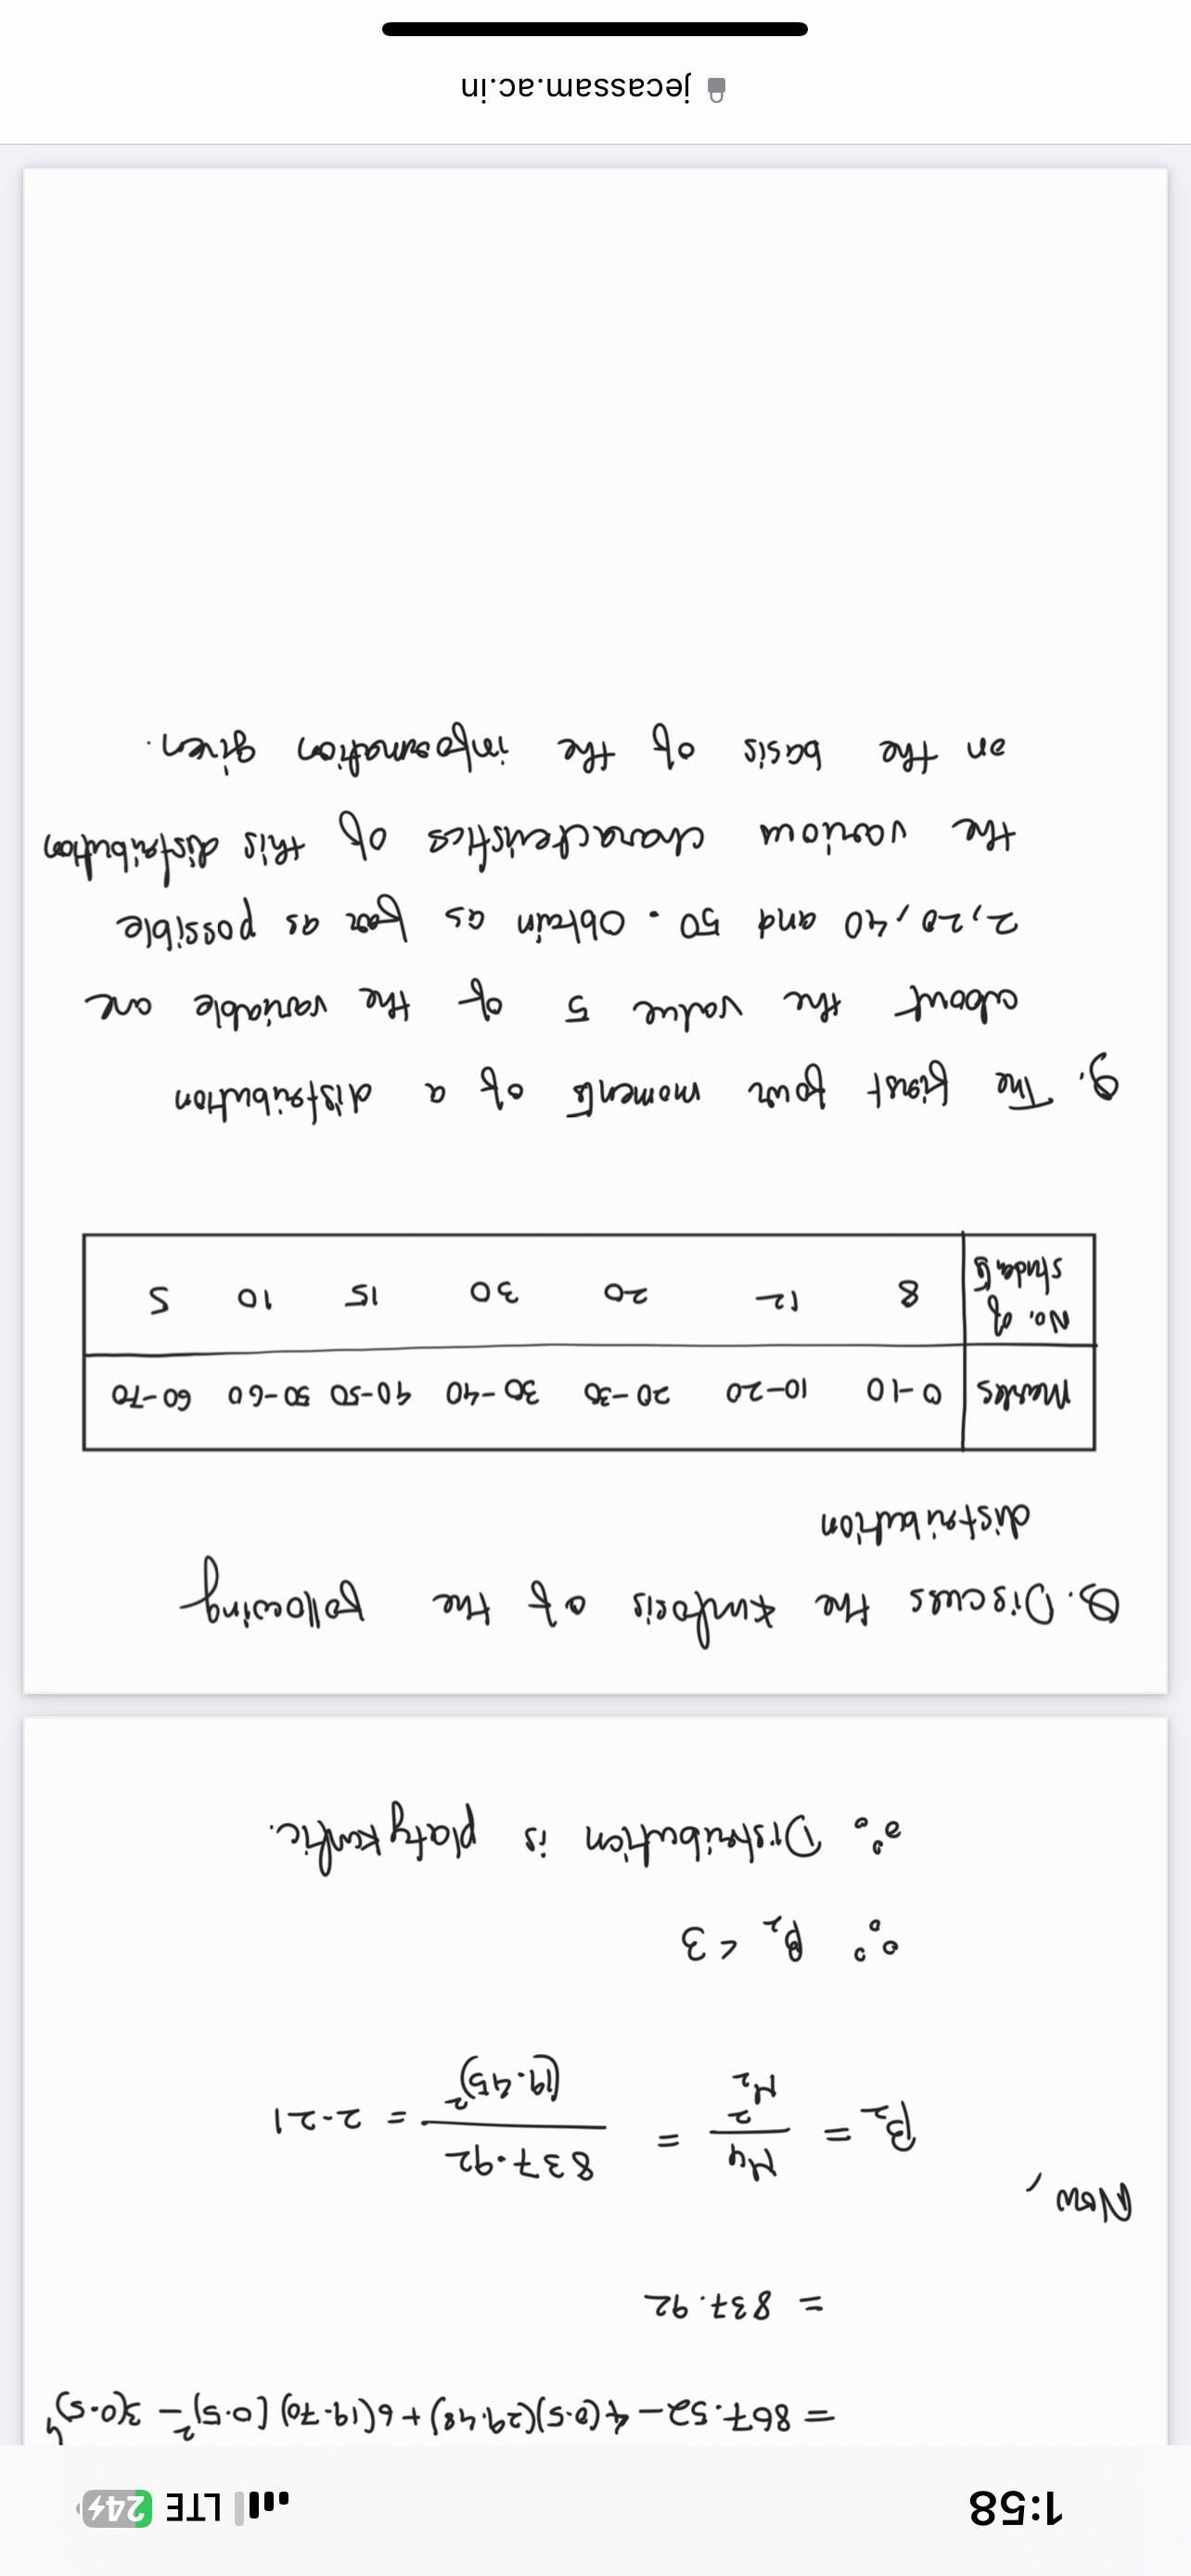 1:58 LTE 24
= 867.52 - 4(0.5)(29.48) + 6(19.70) (0.5)² - 3(0.5)⁴
= 837.92
Now,
β₂ = μ₄/μ₂² = 837.92/(19.45)² = 2.21
∵ β₂ < 3
∴ Distribution is platykurtic.
Q. Discuss the kurtosis of the following
distribution
Marks 0-10 10-20 20-30 30-40 40-50 50-60 60-70
No. of students 8 12 20 30 15 10 5
Q. The first four moments of a distribution
about the value 5 of the variable are
2, 20, 40 and 50. Obtain as far as possible
the various characteristics of this distribution
on the basis of the information given.
jecassam.ac.in